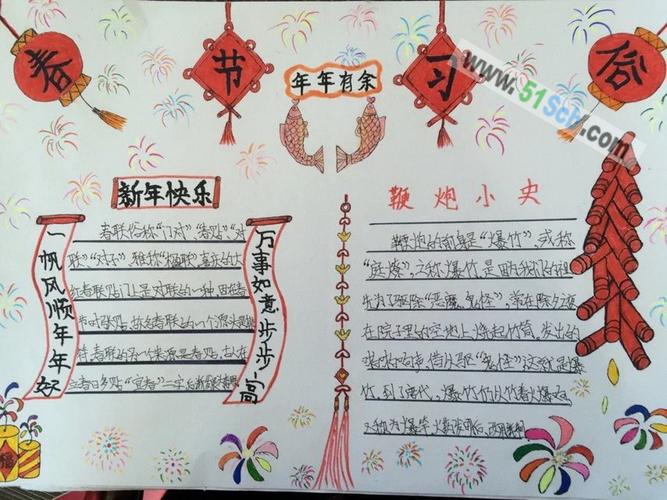 春节习俗
www.51Sch.com
年年有余
新年快乐
一帆风顺年年好
万事如意步步高
春联俗称“门对”,“春贴”,“对
联”,“对子”,雅称“楹联”
春联贴门上是对联的一种,因在春
节时张贴,故名春联的一个源头是桃
符春联的另一个来源是春贴,古人在
立春日多贴“宜春”二字后
鞭炮小史
鞭炮的前身是“爆竹”,或称
“庭燎”,之称爆竹,是因我们的祖
先为了驱除“恶魔、鬼怪”,常在除夕夜
在院子里的空地上,烧起竹筒,发出的
声,借以驱“鬼怪”这就是爆
竹,到了唐代,爆竹
之称为爆竿,火药
福